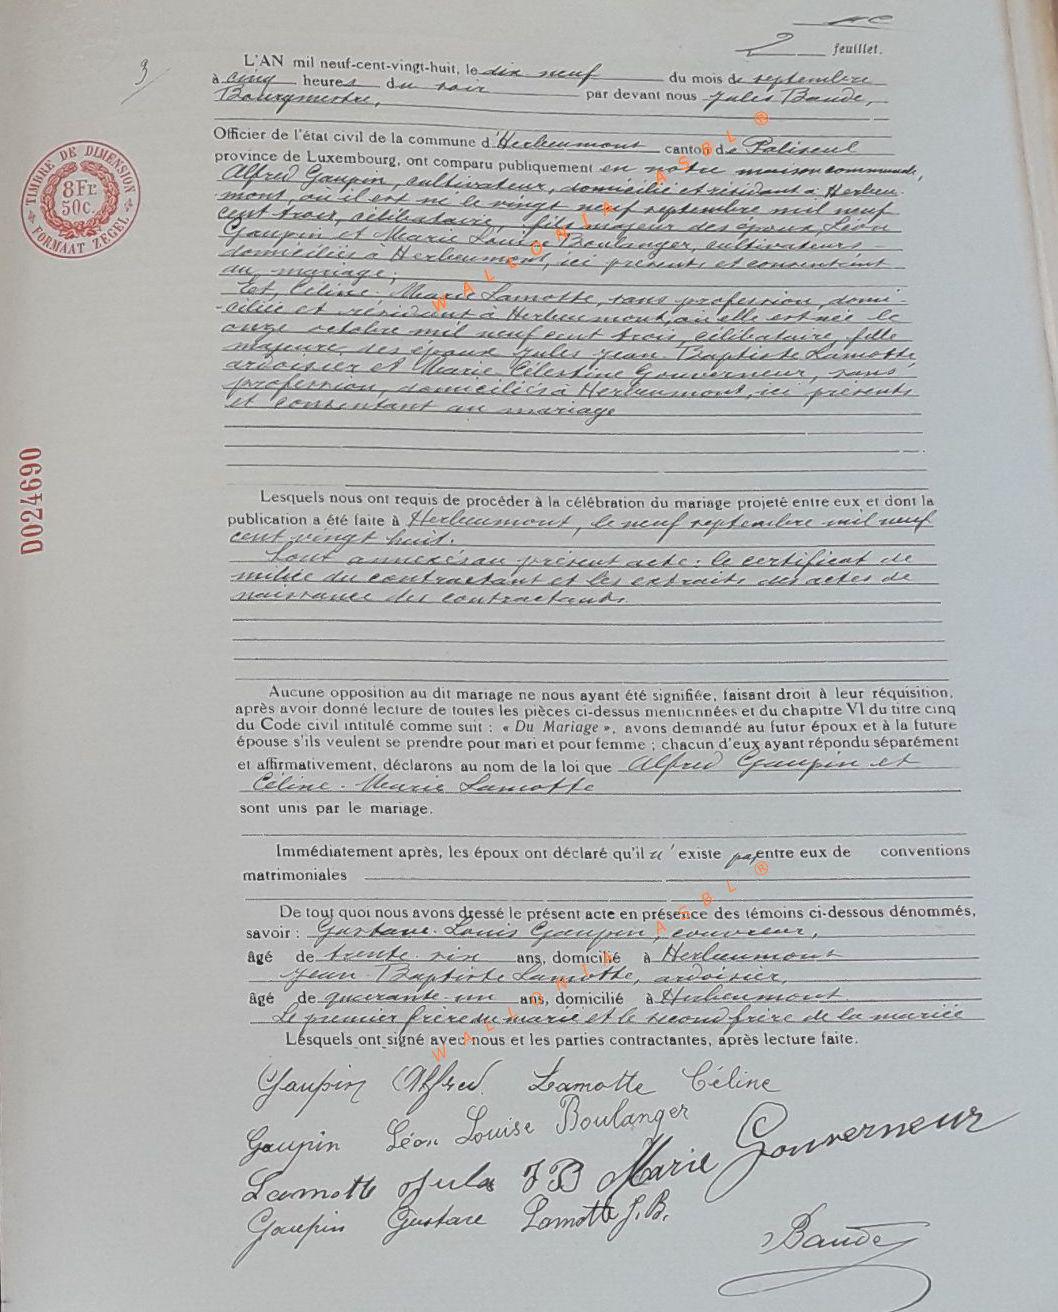 2 feuillet.
3
L'AN mil neuf-cent-vingt-huit, le dix neuf du mois de septembre
à cinq heures du soir par devant nous Jules Baude,
Bourgmestre,
Officier de l'état civil de la commune d'Herbeumont canton de Paliseul
province de Luxembourg, ont comparu publiquement en notre maison communale,
Alfred Gaupin, cultivateur, domicilié et résidant à Herbeu-
mont, où il est né le vingt neuf septembre mil neuf
cent trois, célibataire, fils majeur des époux Léon
Gaupin et Marie Louise Boulanger, cultivateurs
domiciliés à Herbeumont, ici présents et consentant
au mariage;
Et, Céline-Marie Lamotte, sans profession, domi-
-ciliée et résidant à Herbeumont, où elle est née le
onze octobre mil neuf cent trois, célibataire, fille
majeure des époux Jules Jean-Baptiste Lamotte,
ardoisier et Marie Célestine Gouverneur, sans
profession, domiciliés à Herbeumont, ici présents
et consentant au mariage
Lesquels nous ont requis de procéder à la célébration du mariage projeté entre eux et dont la
publication a été faite à Herbeumont, le neuf septembre mil neuf
cent vingt huit.
Sont annexés au présent acte: le certificat de
milice du contractant et les extraits des actes de
naissance des contractants.
Aucune opposition au dit mariage ne nous ayant été signifiée, faisant droit à leur réquisition,
après avoir donné lecture de toutes les pièces ci-dessus mentionnées et du chapitre VI du titre cinq
du Code civil intitulé comme suit : « Du Mariage », avons demandé au futur époux et à la future
épouse s'ils veulent se prendre pour mari et pour femme ; chacun d'eux ayant répondu séparément
et affirmativement, déclarons au nom de la loi que Alfred Gaupin et
Céline-Marie Lamotte
sont unis par le mariage.
Immédiatement après, les époux ont déclaré qu'il n'existe pas entre eux de conventions
matrimoniales
De tout quoi nous avons dressé le présent acte en présence des témoins ci-dessous dénommés,
savoir : Gustave-Louis Gaupin, couvreur,
âgé de trente six ans, domicilié à Herbeumont
Jean-Baptiste Lamotte, ardoisier,
âgé de quarante-un ans, domicilié à Herbeumont
Le premier frère du marié et le second frère de la mariée
Lesquels ont signé avec nous et les parties contractantes, après lecture faite.
Gaupin Alfred Lamotte Céline
Gaupin Léon Louise Boulanger
Lamotte Jules JB Marie Gouverneur
Gaupin Gustave Lamotte J.B.
Baude
TIMBRE DE DIMENSION
8Fr
50c.
FORMAAT ZEGEL
D024690
WALLONIA ASBL ®
WALLONIA ASBL ®